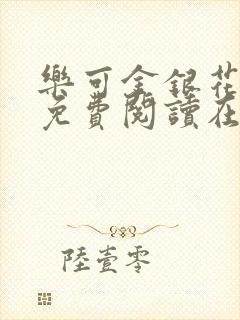 樂可金銀花
免費閱讀在
陸壹零